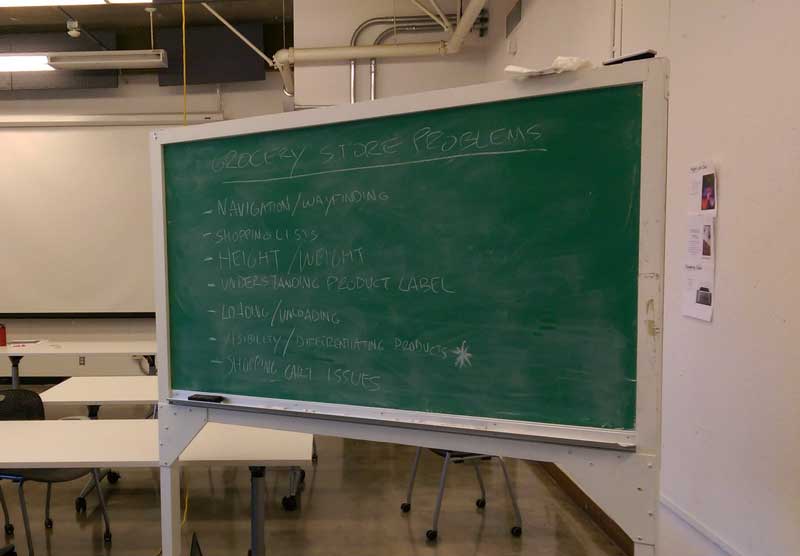 GROCERY STORE PROBLEMS
- NAVIGATION/WAYFINDING
- SHOPPING LISTS
- HEIGHT/WEIGHT
- UNDERSTANDING PRODUCT LABEL
- LOADING/UNLOADING
- VISIBILITY/DIFFERENTIATING PRODUCTS *
- SHOPPING CART ISSUES